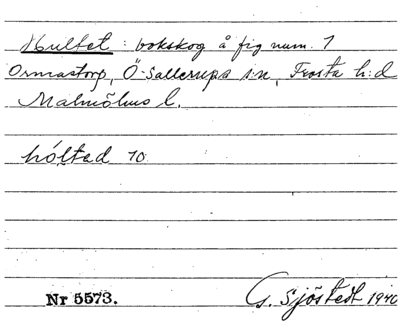 Hultet : bokskog å fig num. 1
Ormastorp, Ö. Sallerups s:n, Frosta h:d
Malmöhus l.
hóltad 10
Nr 5573.
G. Sjöstedt 1940